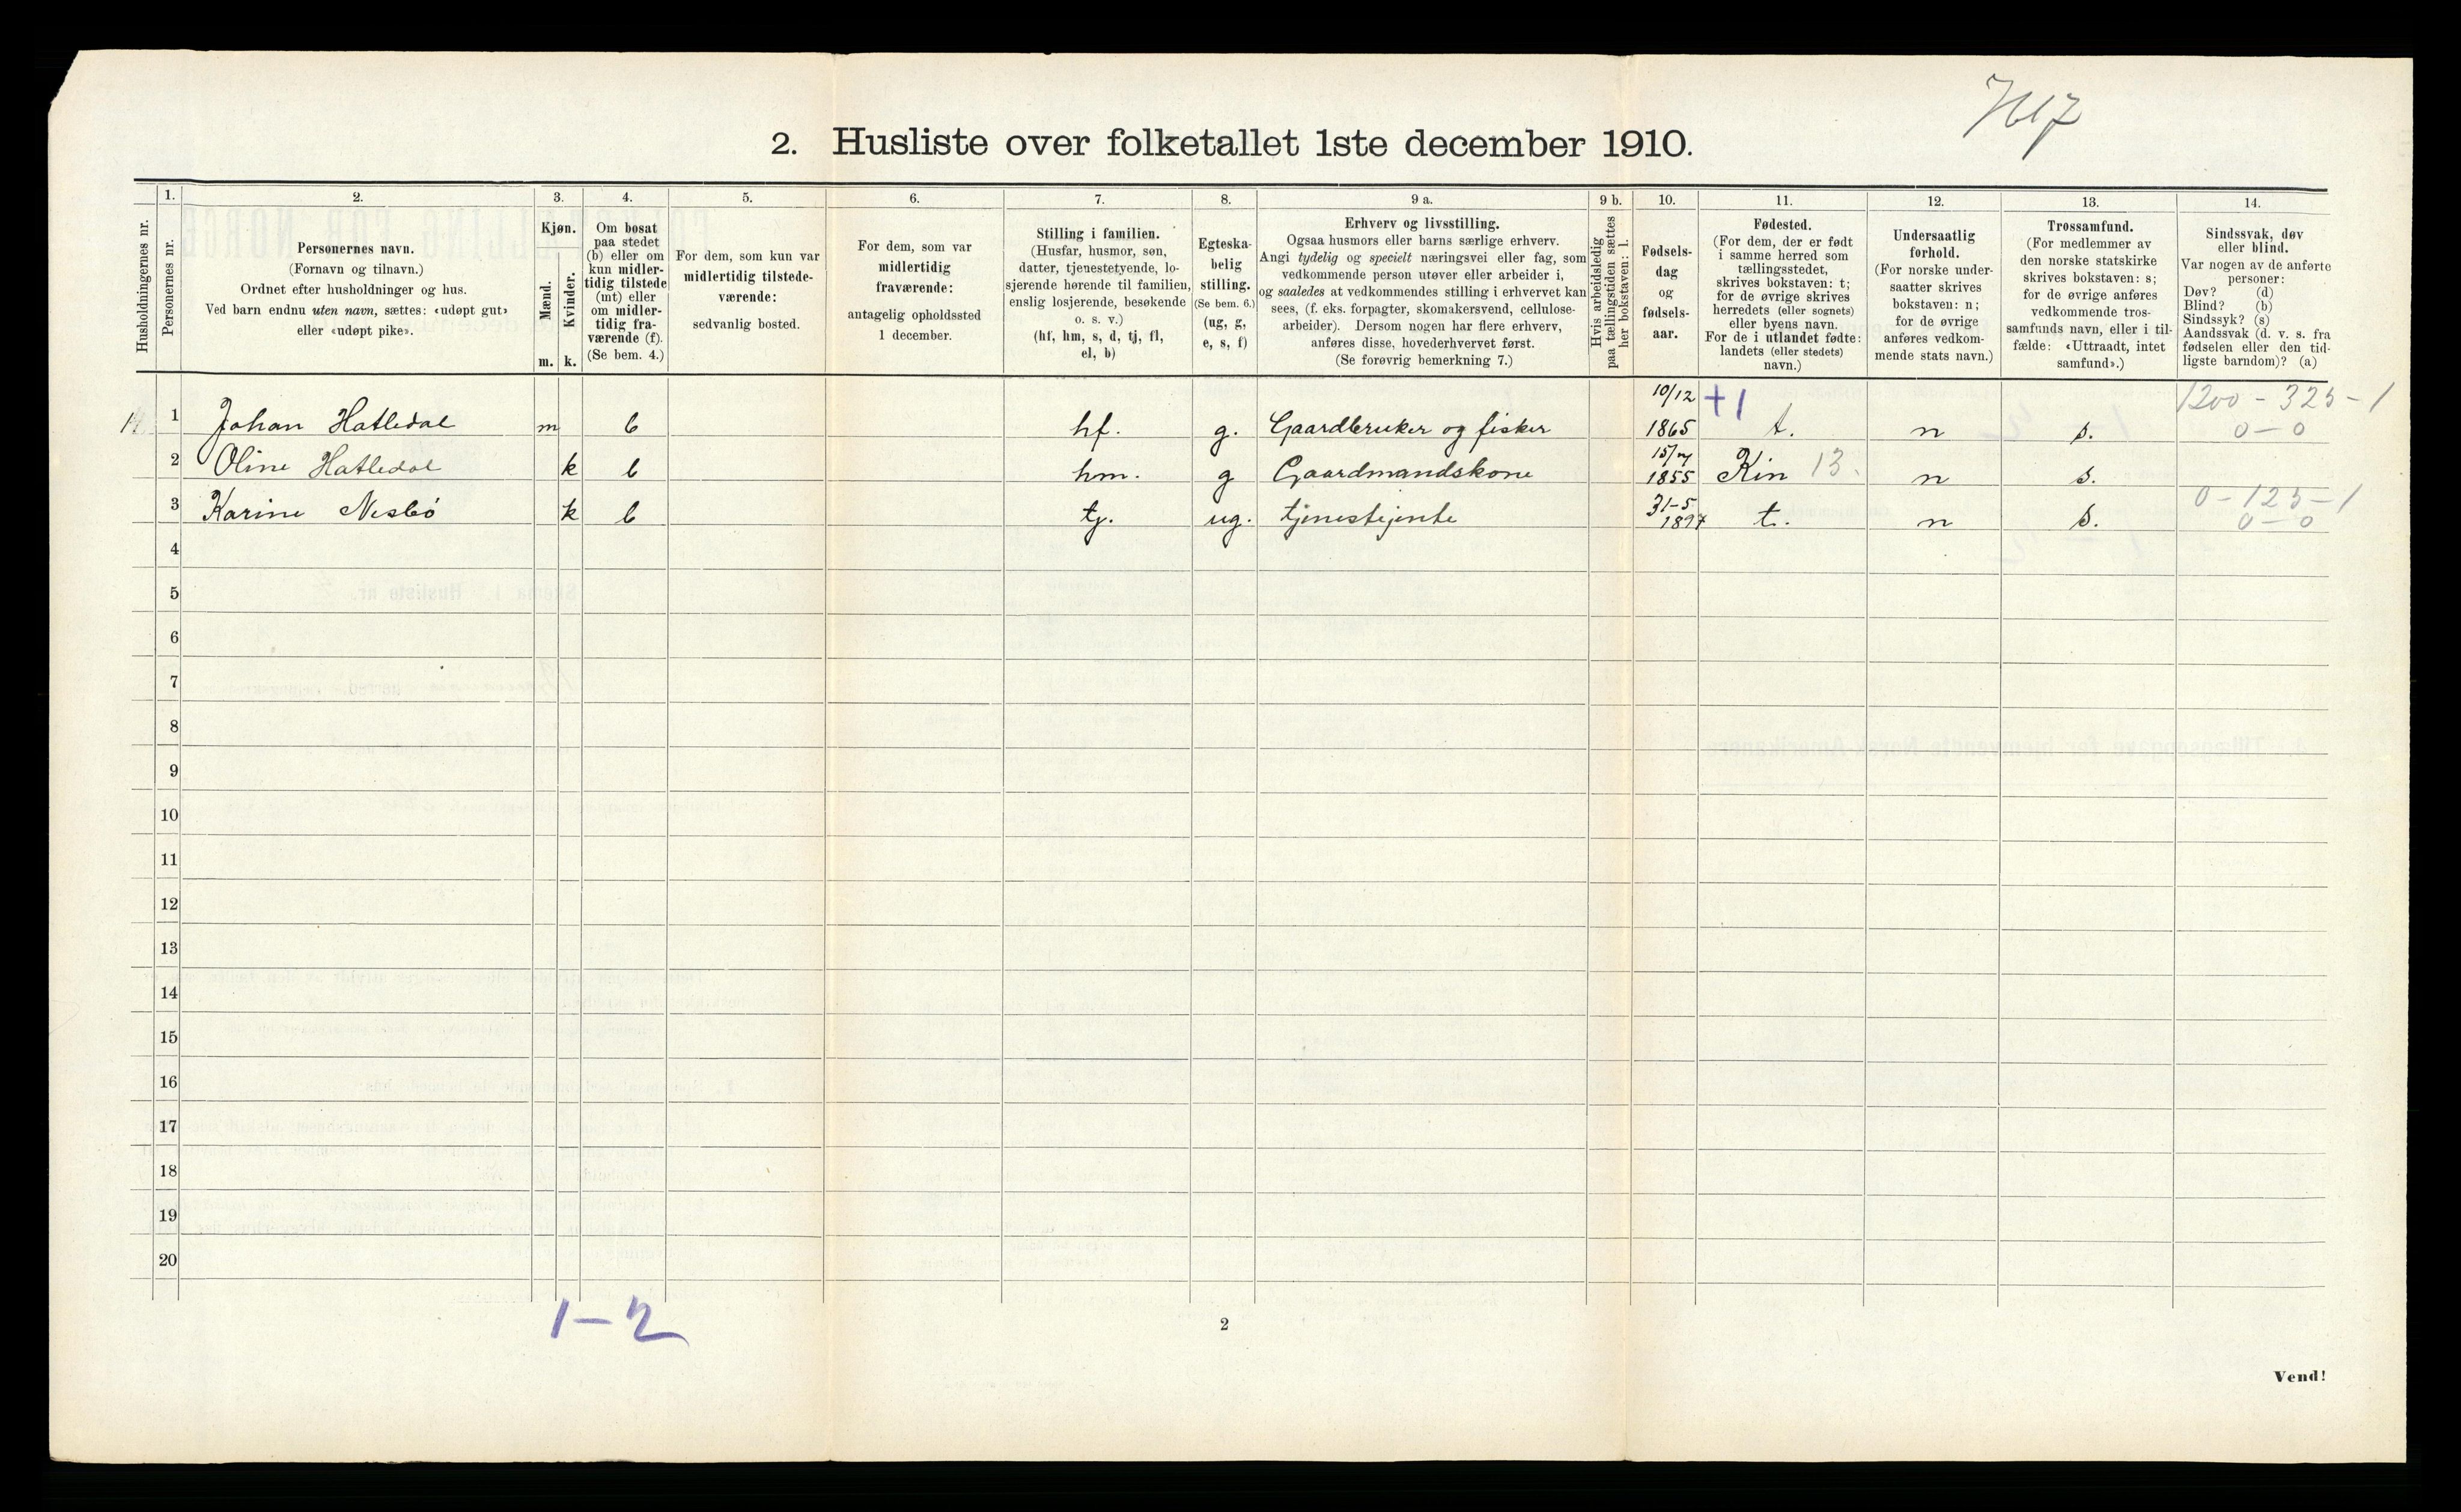 2. Husliste over folketallet 1ste december 1910.
Husholdningernes nr.
1.
Personernes nr.
2.
Personernes navn.
(Fornavn og tilnavn.)
Ordnet efter husholdninger og hus.
Ved barn endnu uten navn, sættes: «udøpt gut»
eller «udøpt pike».
3.
Kjøn.
Mænd.
Kvinder.
m. k.
4.
Om bosat
paa stedet
(b) eller om
kun midler-
tidig tilstede
(mt) eller
om midler-
tidig fra-
værende (f).
(Se bem. 4.)
5.
For dem, som kun var
midlertidig tilstede-
værende:
sedvanlig bosted.
6.
For dem, som var
midlertidig
fraværende:
antagelig opholdssted
1 december.
7.
Stilling i familien.
(Husfar, husmor, søn,
datter, tjenestetyende, lo-
sjerende hørende til familien,
enslig losjerende, besøkende
o. s. v.)
(hf, hm, s, d, tj, fl,
el, b)
8.
Egteska-
belig
stilling.
(Se bem. 6.)
(ug, g,
e, s, f)
9 a.
Erhverv og livsstilling.
Ogsaa husmors eller barns særlige erhverv.
Angi tydelig og specielt næringsvei eller fag, som
vedkommende person utøver eller arbeider i,
og saaledes at vedkommendes stilling i erhvervet kan
sees, (f. eks. forpagter, skomakersvend, cellulose-
arbeider). Dersom nogen har flere erhverv,
anføres disse, hovederhvervet først.
(Se forøvrig bemerkning 7.)
9 b.
Hvis arbeidsledig
paa tællingstiden sættes
her bokstaven: l.
10.
Fødsels-
dag
og
fødsels-
aar.
11.
Fødested.
(For dem, der er født
i samme herred som
tællingsstedet,
skrives bokstaven: t;
for de øvrige skrives
herredets (eller sognets)
eller byens navn.
For de i utlandet fødte:
landets (eller stedets)
navn.)
12.
Undersaatlig
forhold.
(For norske under-
saatter skrives
bokstaven: n;
for de øvrige
anføres vedkom-
mende stats navn.)
13.
Trossamfund.
(For medlemmer av
den norske statskirke
skrives bokstaven: s;
for de øvrige anføres
vedkommende tros-
samfunds navn, eller i til-
fælde: «Uttraadt, intet
samfund».)
14.
Sindssvak, døv
eller blind.
Var nogen av de anførte
personer:
Døv? (d)
Blind? (b)
Sindssyk? (s)
Aandssvak (d. v. s. fra
fødselen eller den tid-
ligste barndom)? (a)
1 Johan Hatledal m b hf. g. Gaardbruker og fisker 10/12 1865 +1 t. n s. 1200 - 325 - 1
0 - 0
2 Oline Hatledal k b hm. g Gaardmandskone 1855 Kin 13. n s.
3 Karine Nesbö k b tj. ug. tjenestejente 31-5 1897 t. n s. 0 - 125 - 1
0 - 0
4
5
6
7
8
9
10
11
12
13
14
15
16
17
18
19
20
1 - 2
2
Vend!